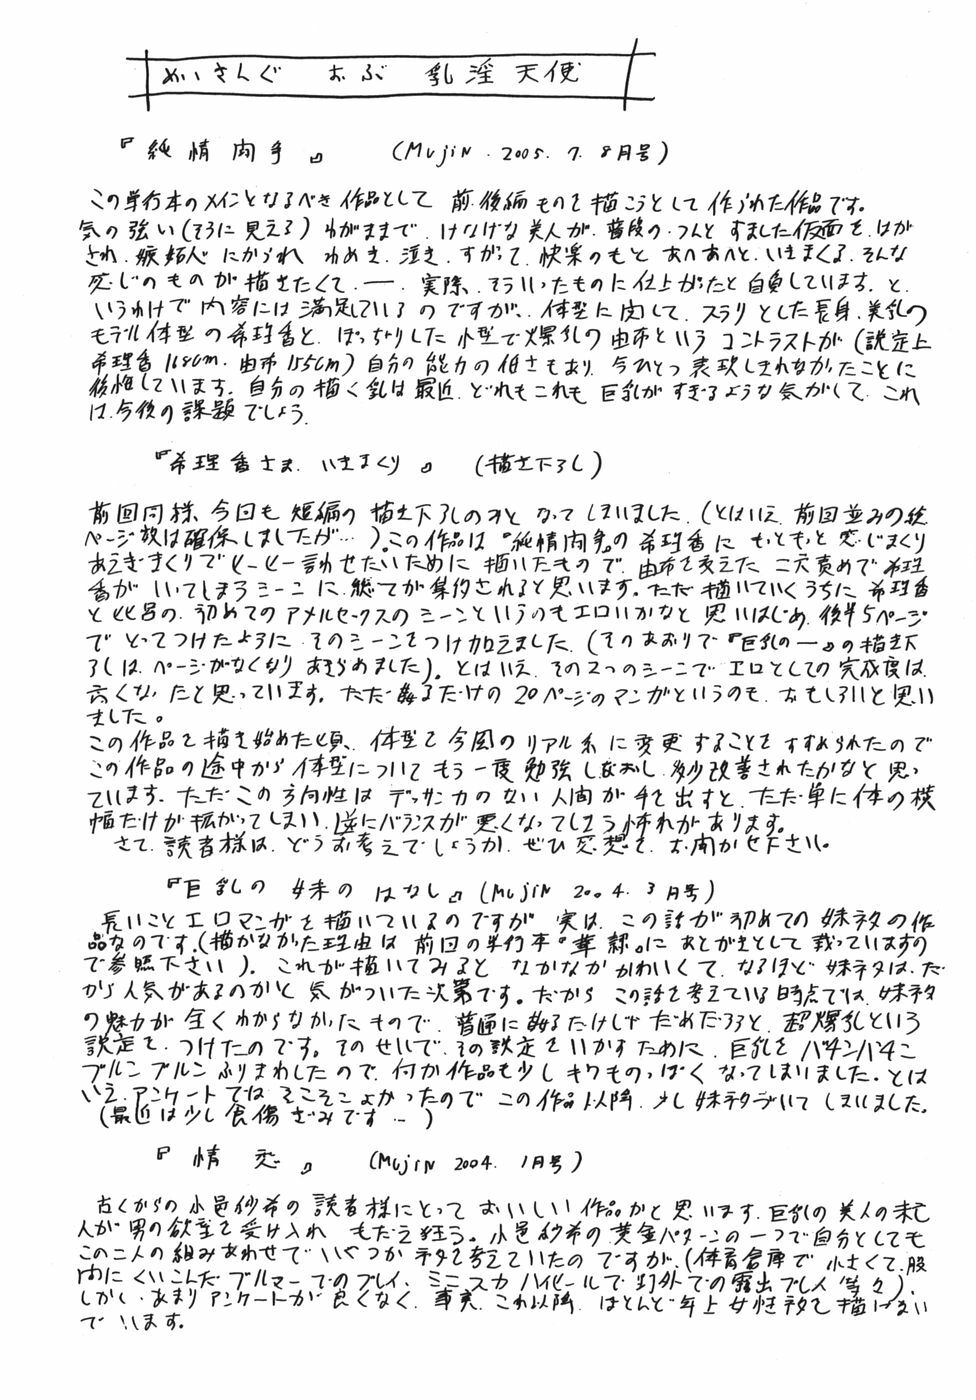 めいきんぐ おぶ 乳淫天使
『純情肉手』 (MUJIN．2005．7．8月号)
この単行本のメインとなるべき作品として 前・後編ものを描こうとして作られた作品です。
気の強い(そうに見える)わがままで、けなげな美人が、普段の、つんとすました仮面を、はが
され、嫉妬心にかられ、わめき、泣き、すがって、快楽のもと あへあへと、いきまくる、そんな
感じのものが描きたくて、―、実際、そういったものに仕上がったと自負しています。と、
いうわけで内容には満足しているのですが、体型に関して、スラリとした長身、美乳の
モデル体型の希理香と、ぽっちゃりした小型で爆乳の由布というコントラストが(設定上
希理香168cm．由布155cm)自分の能力の低さもあり、今ひとつ表現しきれなかったことに
後悔しています。自分の描く乳は最近、どれもこれも巨乳がすぎるような気がして、これ
は、今後の課題でしょう。
『希理香さま、いきまくり』 (描き下ろし)
前回同様、今回も短編の描き下ろしのみとなってしまいました。(とはいえ、前回並みの総
ページ数は確保しましたが…)。この作品は『純情肉手』の希理香にもともと感じまくり
あえぎまくりでヒーヒー言わせたいために描いたもので、由布を交えた二穴責めで希理
香がいてしまうシーンに、総てが集約されると思います。ただ描いていくうちに希理香
と の、初めてのアナルセックスのシーンというのもエロいかなと思いはじめ、後半5ページ
でとってつけたように、そのシーンをつけ加えました。(そのあおりで『巨乳の―』の描き下
ろしは、ページがなくなりあきらめました)。とはいえ、その2つのシーンでエロとしての完成度は
高くなったと思っています。ただ姦るだけの20ページのマンガというのも、おもしろいと思い
ました。
この作品を描き始めた頃、体型を今風のリアル系に変更することをすすめられたので
この作品の途中から体型についてもう一度勉強しなおし、多少改善されたかなと思っ
ています。ただこの方向性はデッサン力のない人間が手を出すと、ただ単に体の横
幅だけが拡がってしまい、逆にバランスが悪くなってしまう怖れがあります。
さて、読者様は、どうお考えでしょうか、ぜひ感想を、お聞かせ下さい。
『巨乳の妹のはなし』(MUJIN 2004．3月号)
長いことエロマンガを描いているのですが、実は、この話が初めての妹ネタの作
品なのです。(描かなかった理由は前回の単行本『華 』にあとがきとして載っていますの
で参照下さい)。これが描いてみると なかなかかわいくて、なるほど妹ネタは、だ
から人気があるのかと気がついた次第です。だからこの話を考えている時点では、妹ネタ
の魅力が全くわからなかったもので、普通に姦るだけじゃだめだろうと、超爆乳という
設定を、つけたのです。そのせいで、その設定をいかすために、巨乳をバチンバチン
ブルンブルンふりまわしたので、何か作品も少しキワものっぽくなってしまいました。とは
いえ、アンケートでは、そこそこよかったので この作品以降、少し妹ネタづいてしまいました。
(最近は少し食傷ぎみです…)
『情恋』 (MUJIN 2004．1月号)
古くからの小邑紗希の読者様にとって おいしい作品かと思います。巨乳の美人の未亡
人が男の欲望を受け入れ もだえ狂う。小邑紗希の黄金パターンの一つで自分としても
この二人の組みあわせでいくつかネタを考えていたのですが、(体育倉庫で小さくて、股
間にくいこんだブルマーでのプレイ、ミニスカハイヒールで町外での露出プレイ等々)、
しかし、あまりアンケートが良くなく、事実、これ以降、ほとんど年上女性ネタを描けない
でいます。